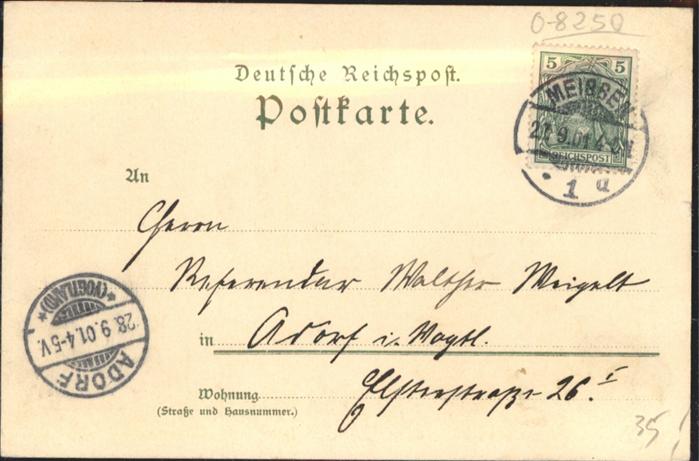 0-8250
Deutsche Reichspost.
Postkarte.
5 5
REICHSPOST
MEISSEN
27.9.01.4-5N
1 d
An
Herrn
Referendar Walther Weigelt
in Adorf i. Vogtl.
Wohnung Elsterstraße 26.I
(Straße und Hausnummer.)
ADORF
28.9.01.4-5V.
*(VOGTLAND)*
35